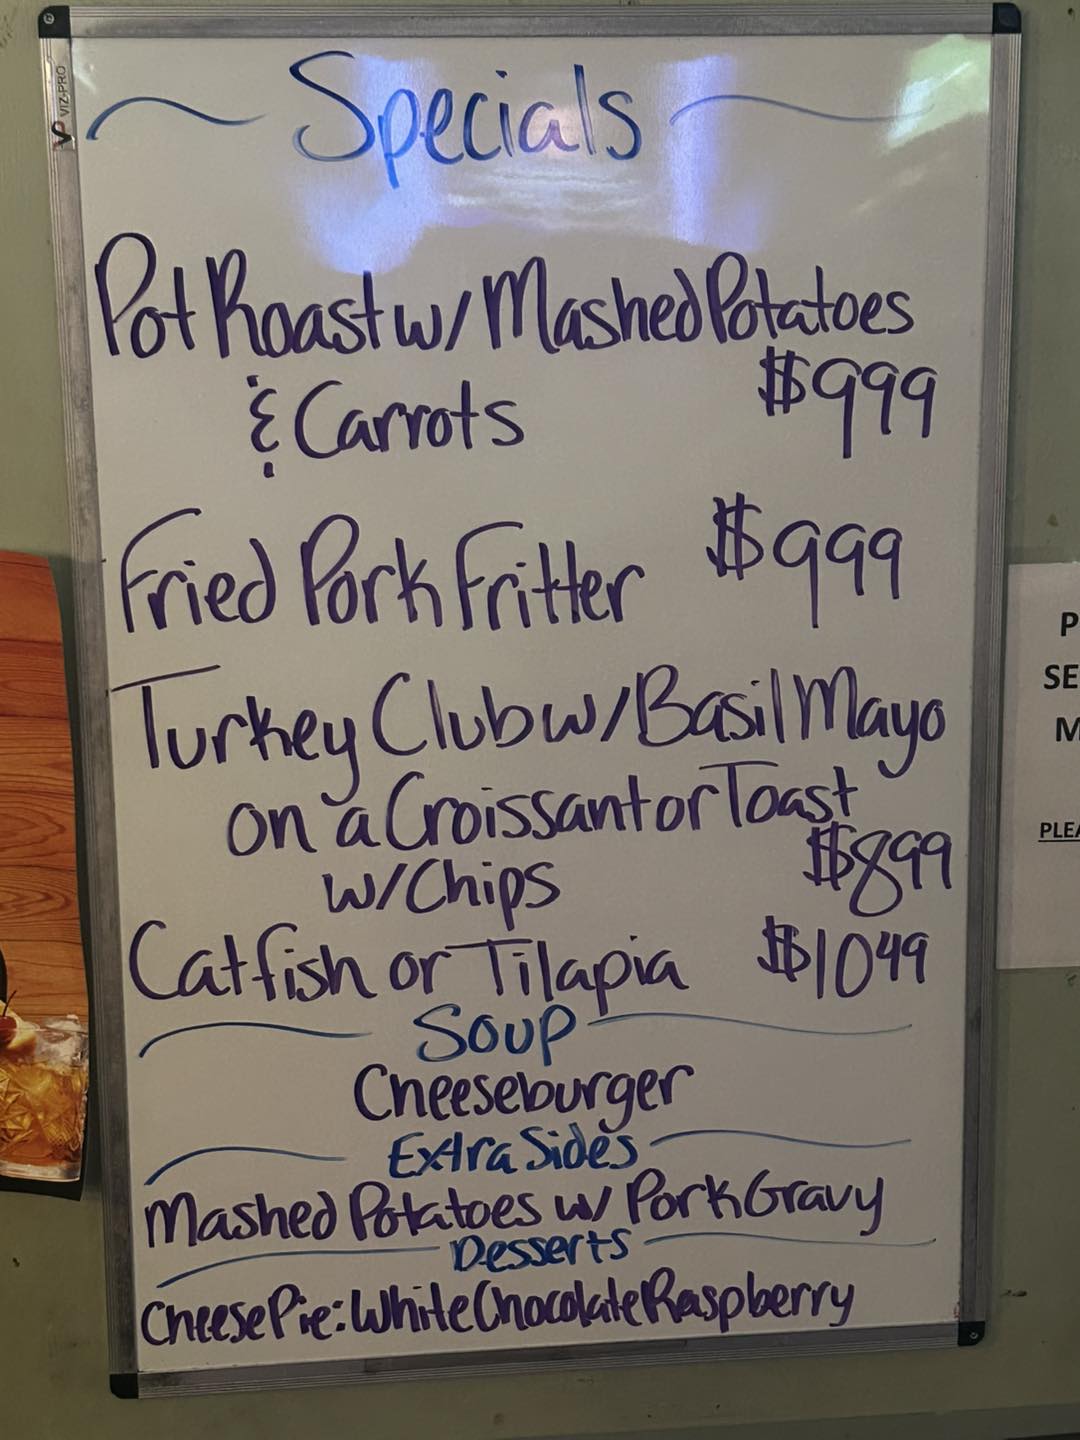 VIZ-PRO
Specials
Pot Roast w/ Mashed Potatoes
& Carrots $999
Fried Pork Fritter $999
Turkey Club w/ Basil Mayo
on a Croissant or Toast
w/ Chips $899
Catfish or Tilapia $1049
Soup
Cheeseburger
Extra Sides
Mashed Potatoes w/ Pork Gravy
Desserts
Cheese Pie: White Chocolate Raspberry
P
SE
M
PLEA